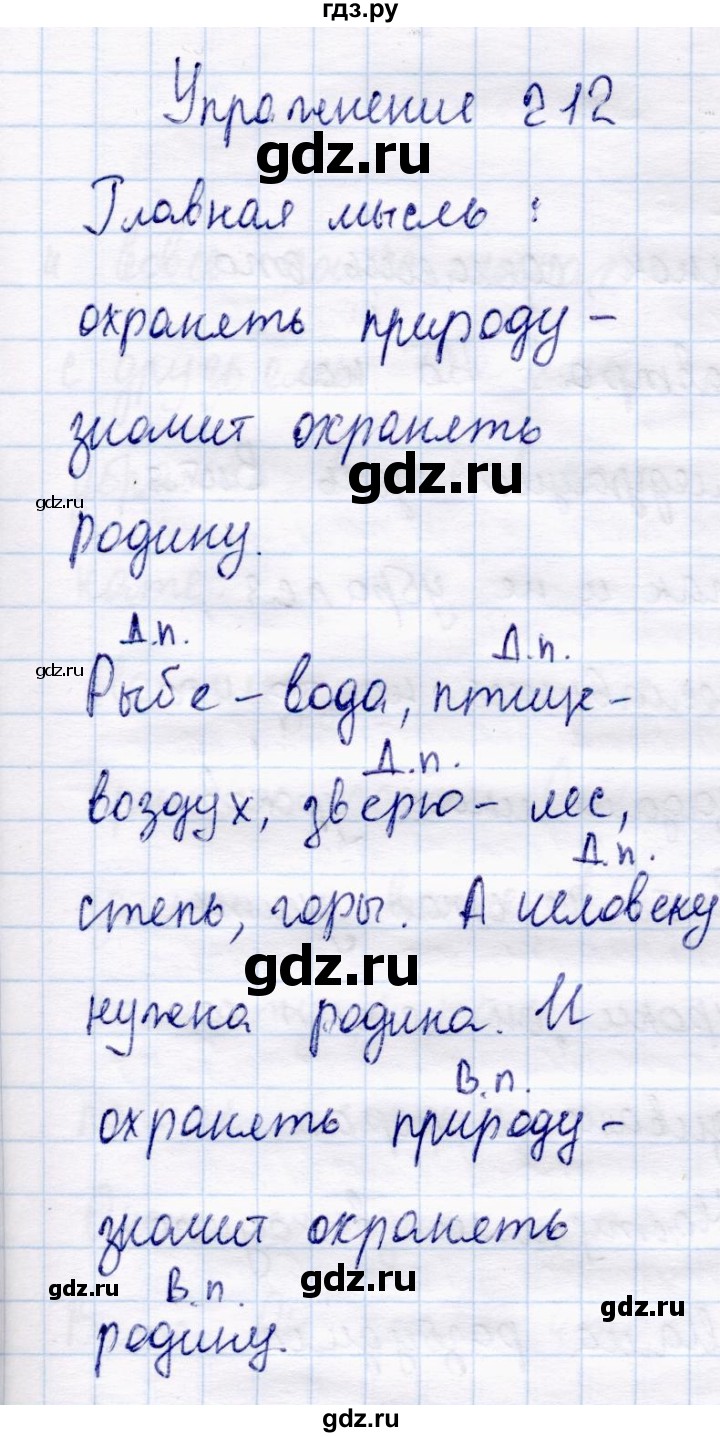 гдз.ру
Упражнение 212
gdz.ru
Главная мысль:
охранять природу -
значит охранять
gdz.ru
gdz.ru
родину.
Д.п. Д.п.
gdz.ru
Рыбе - вода, птице -
Д.п.
воздух, зверю - лес,
Д.п.
степь, горы. А человеку
gdz.ru
нужна родина. И
В.п.
охранять природу -
значит охранять
gdz.ru gdz.ru gdz.ru
В.п.
родину.
gdz.ru